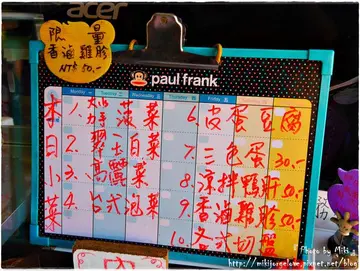 acer
限量
香滷雞胗
NT$ 50.-
paul frank
本日小菜
1. 炒菠菜
2. 翠玉白菜
3. 高麗菜
4. 台式泡菜
6. 皮蛋豆腐
7. 三色蛋 30.-
8. 涼拌鴨肝 50.-
9. 香滷雞胗 50.-
10. 各式切盤
Photo by Miki.
http://mikijorgelove.pixnet.net/blog